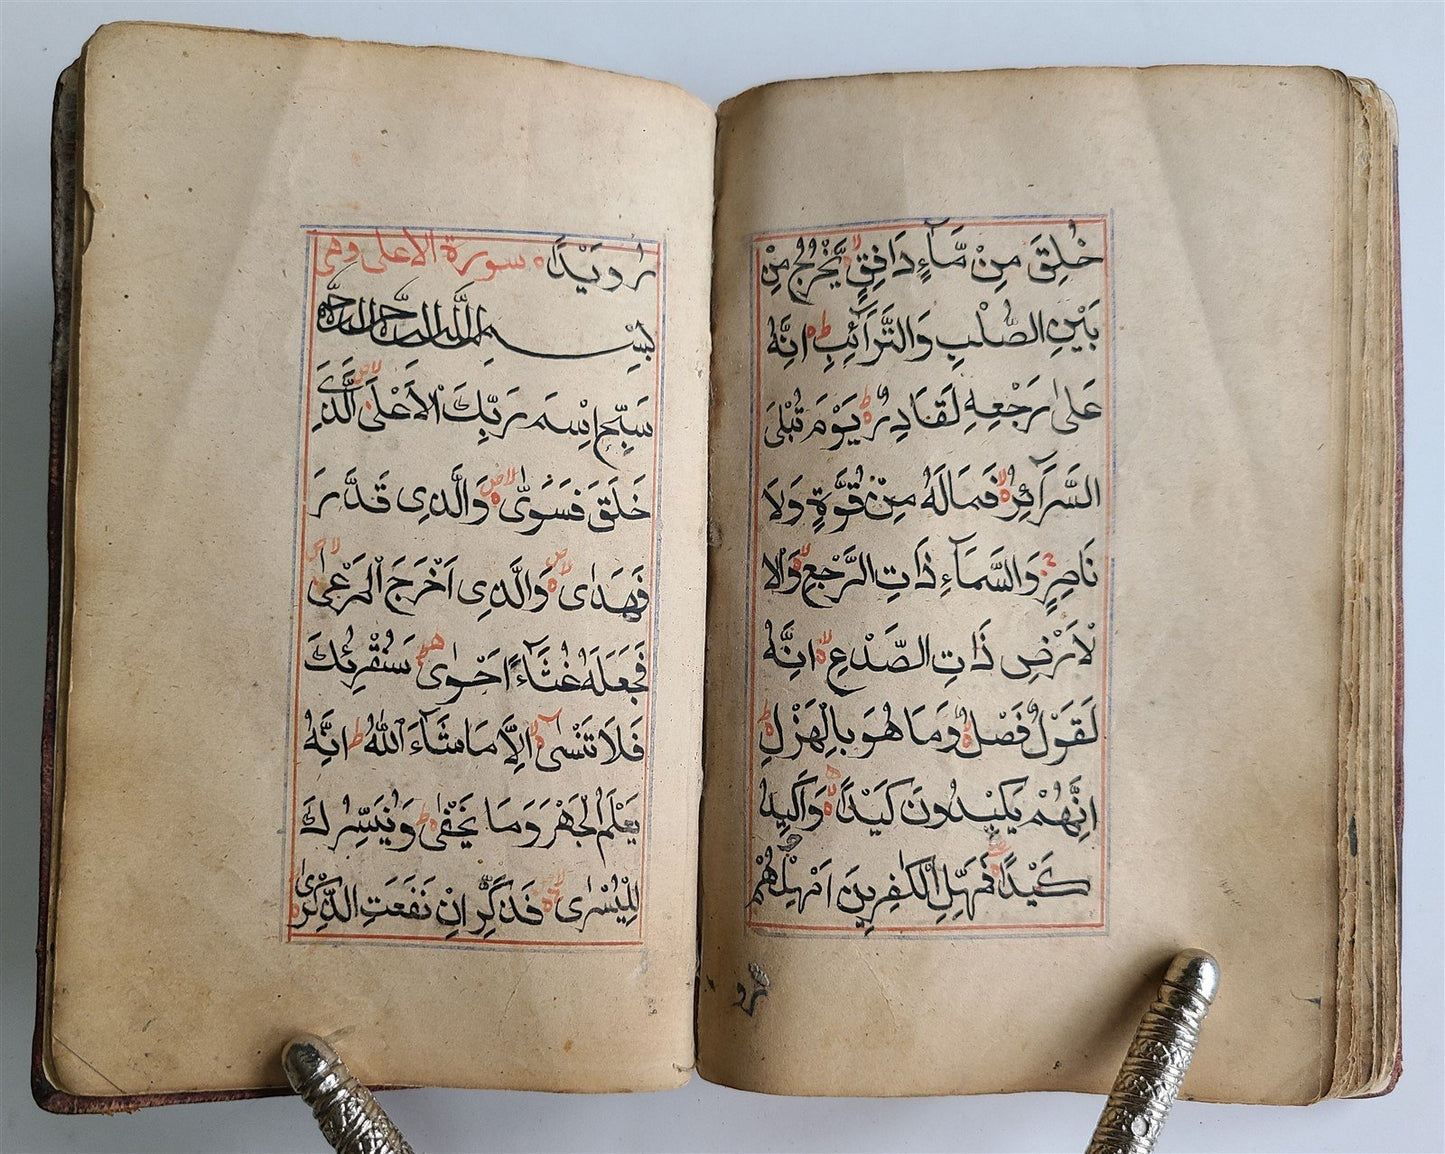 خُلِقَ مِنْ مَّآءٍ دَافِقٍ لا يَّخْرُجُ مِنْ
بَيْنِ الصُّلْبِ وَالتَّرَآئِبِ ط اِنَّهُ
عَلٰى رَجْعِهِ لَقَادِرٌ ط يَوْمَ تُبْلَى
السَّرَآئِرُ لا فَمَالَهُ مِنْ قُوَّةٍ وَلَا
نَاصِرٍ وَالسَّمَآءِ ذَاتِ الرَّجْعِ لا وَالْا
لْاَرْضِ ذَاتِ الصَّدْعِ لا اِنَّهُ
لَقَوْلٌ فَصْلٌ لا وَمَا هُوَ بِالْهَزْلِ ط
اِنَّهُمْ يَكِيْدُونَ كَيْدًا وَاَكِيدُ
كَيْدًا فَمَهِّلِ الْكٰفِرِينَ اَمْهِلْهُمْ
رو
رُوَيْدًا سورة الاعلى وهى
بِسْمِ اللّٰهِ الرَّحْمٰنِ الرَّحِيْمِ
سَبِّحِ اسْمَ رَبِّكَ الْاَعْلَى لا الَّذِى
خَلَقَ فَسَوّٰى لا ص وَالَّذِى قَدَّرَ
فَهَدٰى لا ص وَالَّذِى اَخْرَجَ الْمَرْعٰى لا
فَجَعَلَهُ غُثَآءً اَحْوٰى سَنُقْرِئُكَ
فَلَا تَنْسٰى لا اِلَّا مَا شَآءَ اللّٰهُ ط اِنَّهُ
يَعْلَمُ الْجَهْرَ وَمَا يَخْفٰى ط وَنُيَسِّرُكَ
لِلْيُسْرٰى فَذَكِّرْ اِنْ نَفَعَتِ الذِّكْرٰى